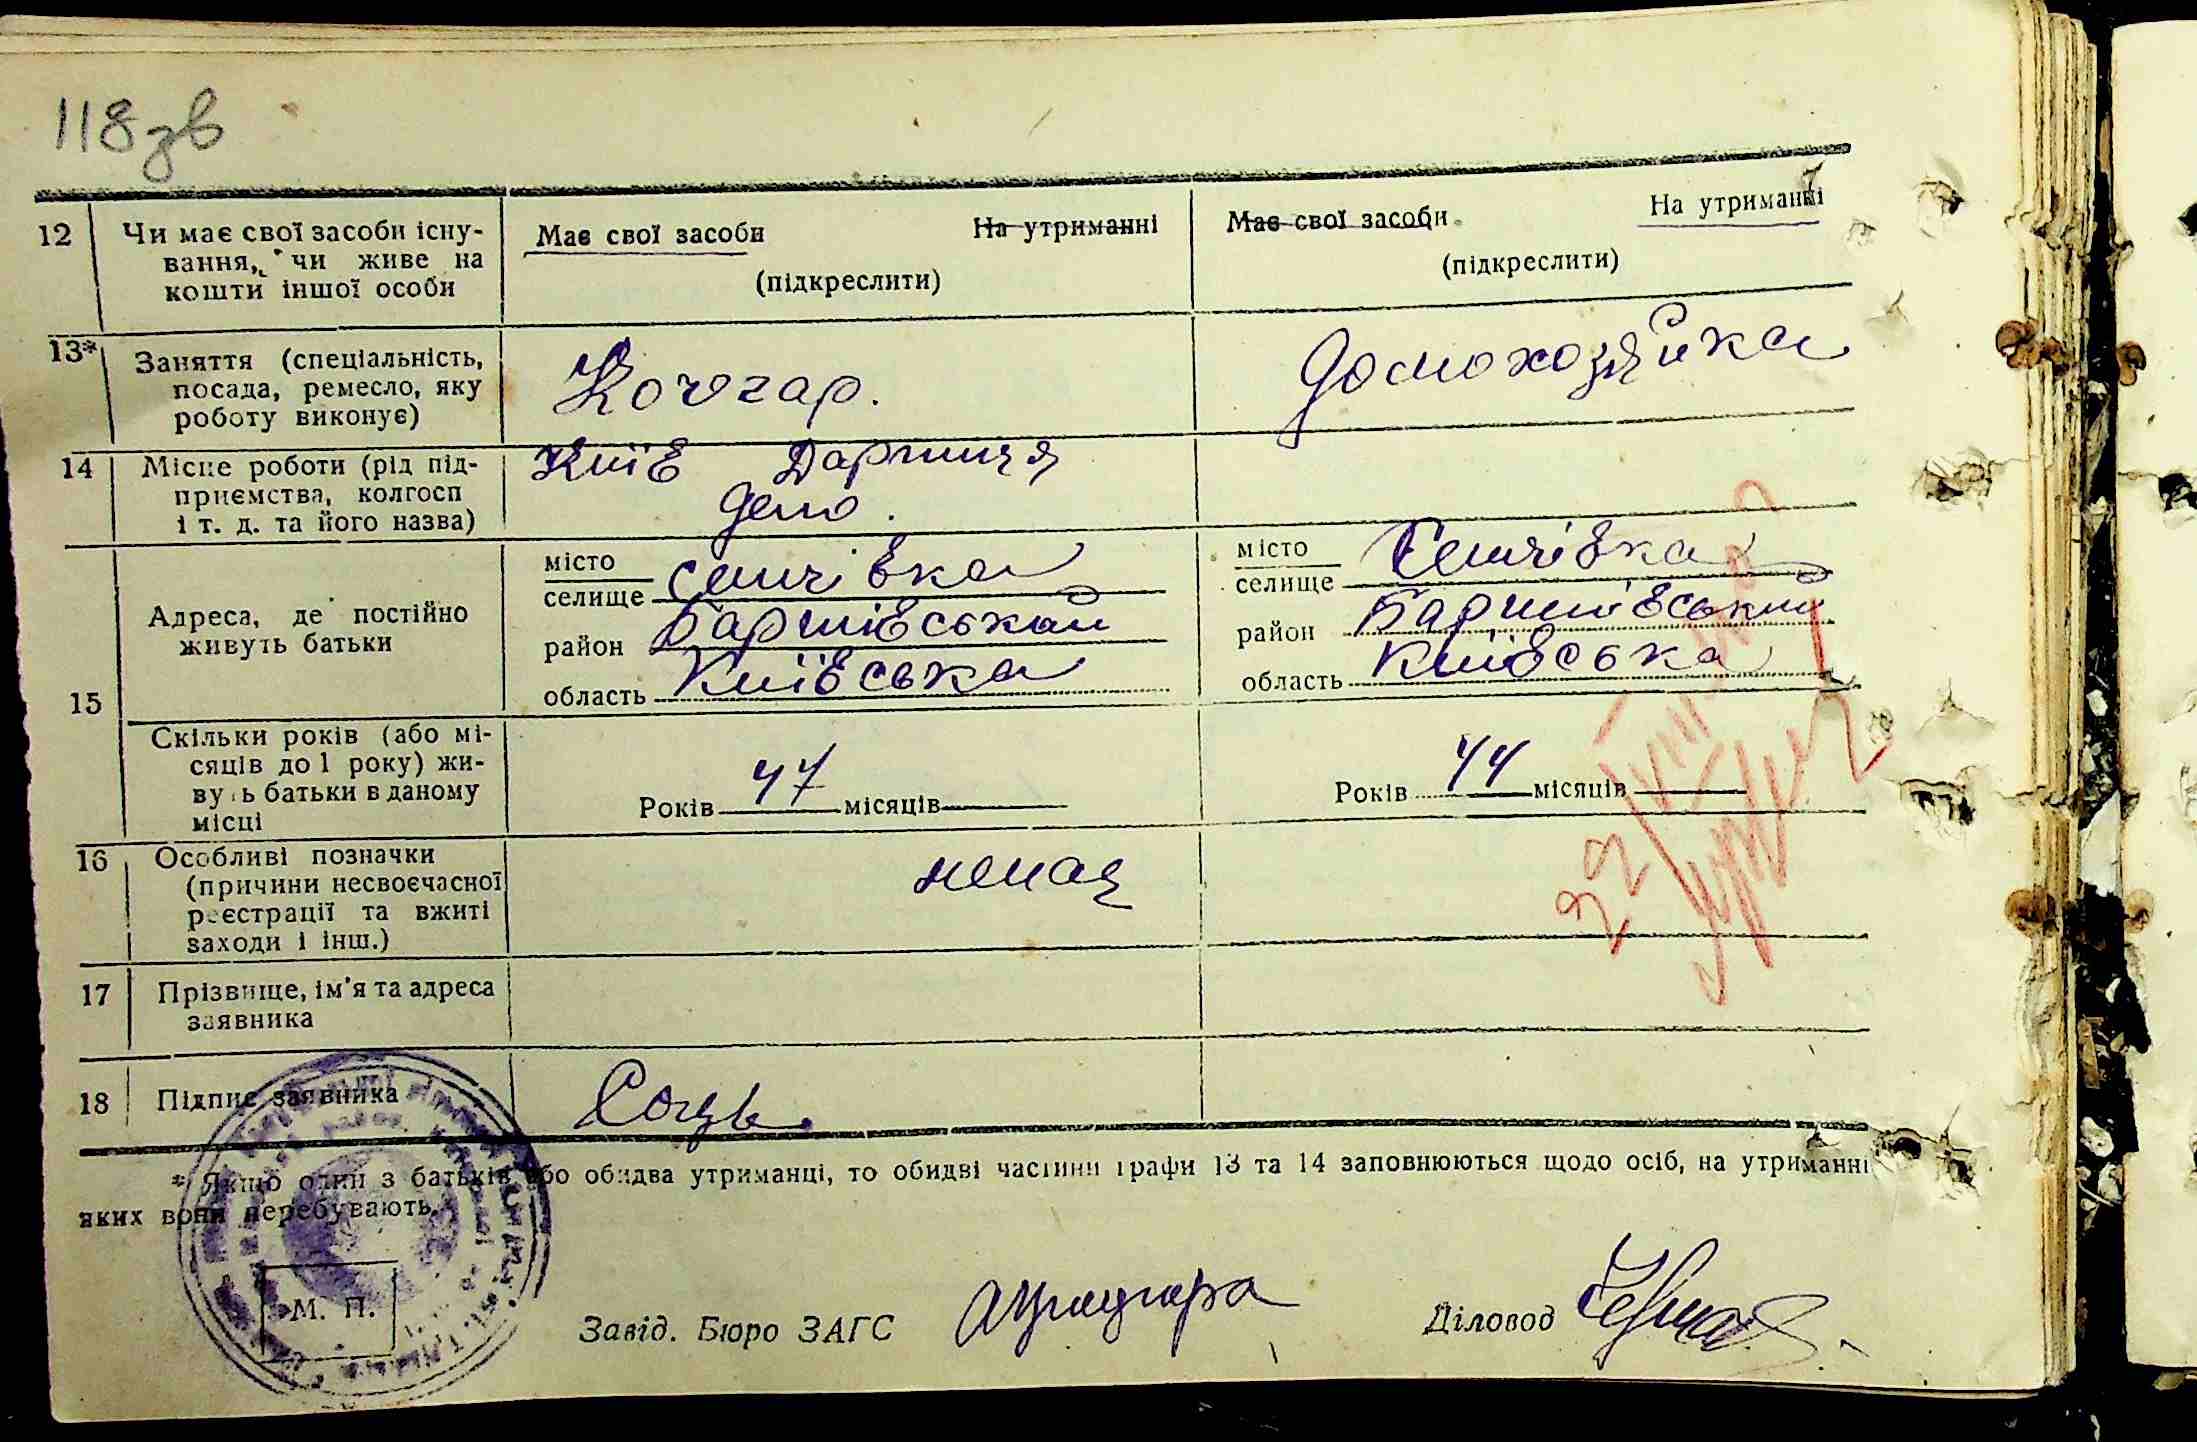 118 зв
12 Чи має свої засоби існу- Має свої засоби На утриманні Має свої засоби На утриманні
вання, чи живе на (підкреслити) (підкреслити)
кошти іншої особи
13* Заняття (спеціальність, Кочегар. домохозяйка
посада, ремесло, яку
роботу виконує)
14 Місце роботи (рід під- Київ Дарниця
приємства, колгосп депо.
і т. д. та його назва)
15 Адреса, де постійно живуть батьки
місто селище Семчівка місто селище Семчівка
район Баришівський район Баришівський
область Київська область Київська
Скільки років (або мі-
сяців до 1 року) жи-
вуть батьки в даному Років 47 місяців Років 44 місяців
місці
16 Особливі позначки немає
(причини несвоєчасної
реєстрації та вжиті
заходи і інш.)
17 Прізвище, ім'я та адреса
заявника
18 Підпис заявника
* Якщо один з батьків або обидва утриманці, то обидві частини графи 13 та 14 заповнюються щодо осіб, на утриманні
яких вони перебувають.
М. П.
Завід. Бюро ЗАГС Діловод